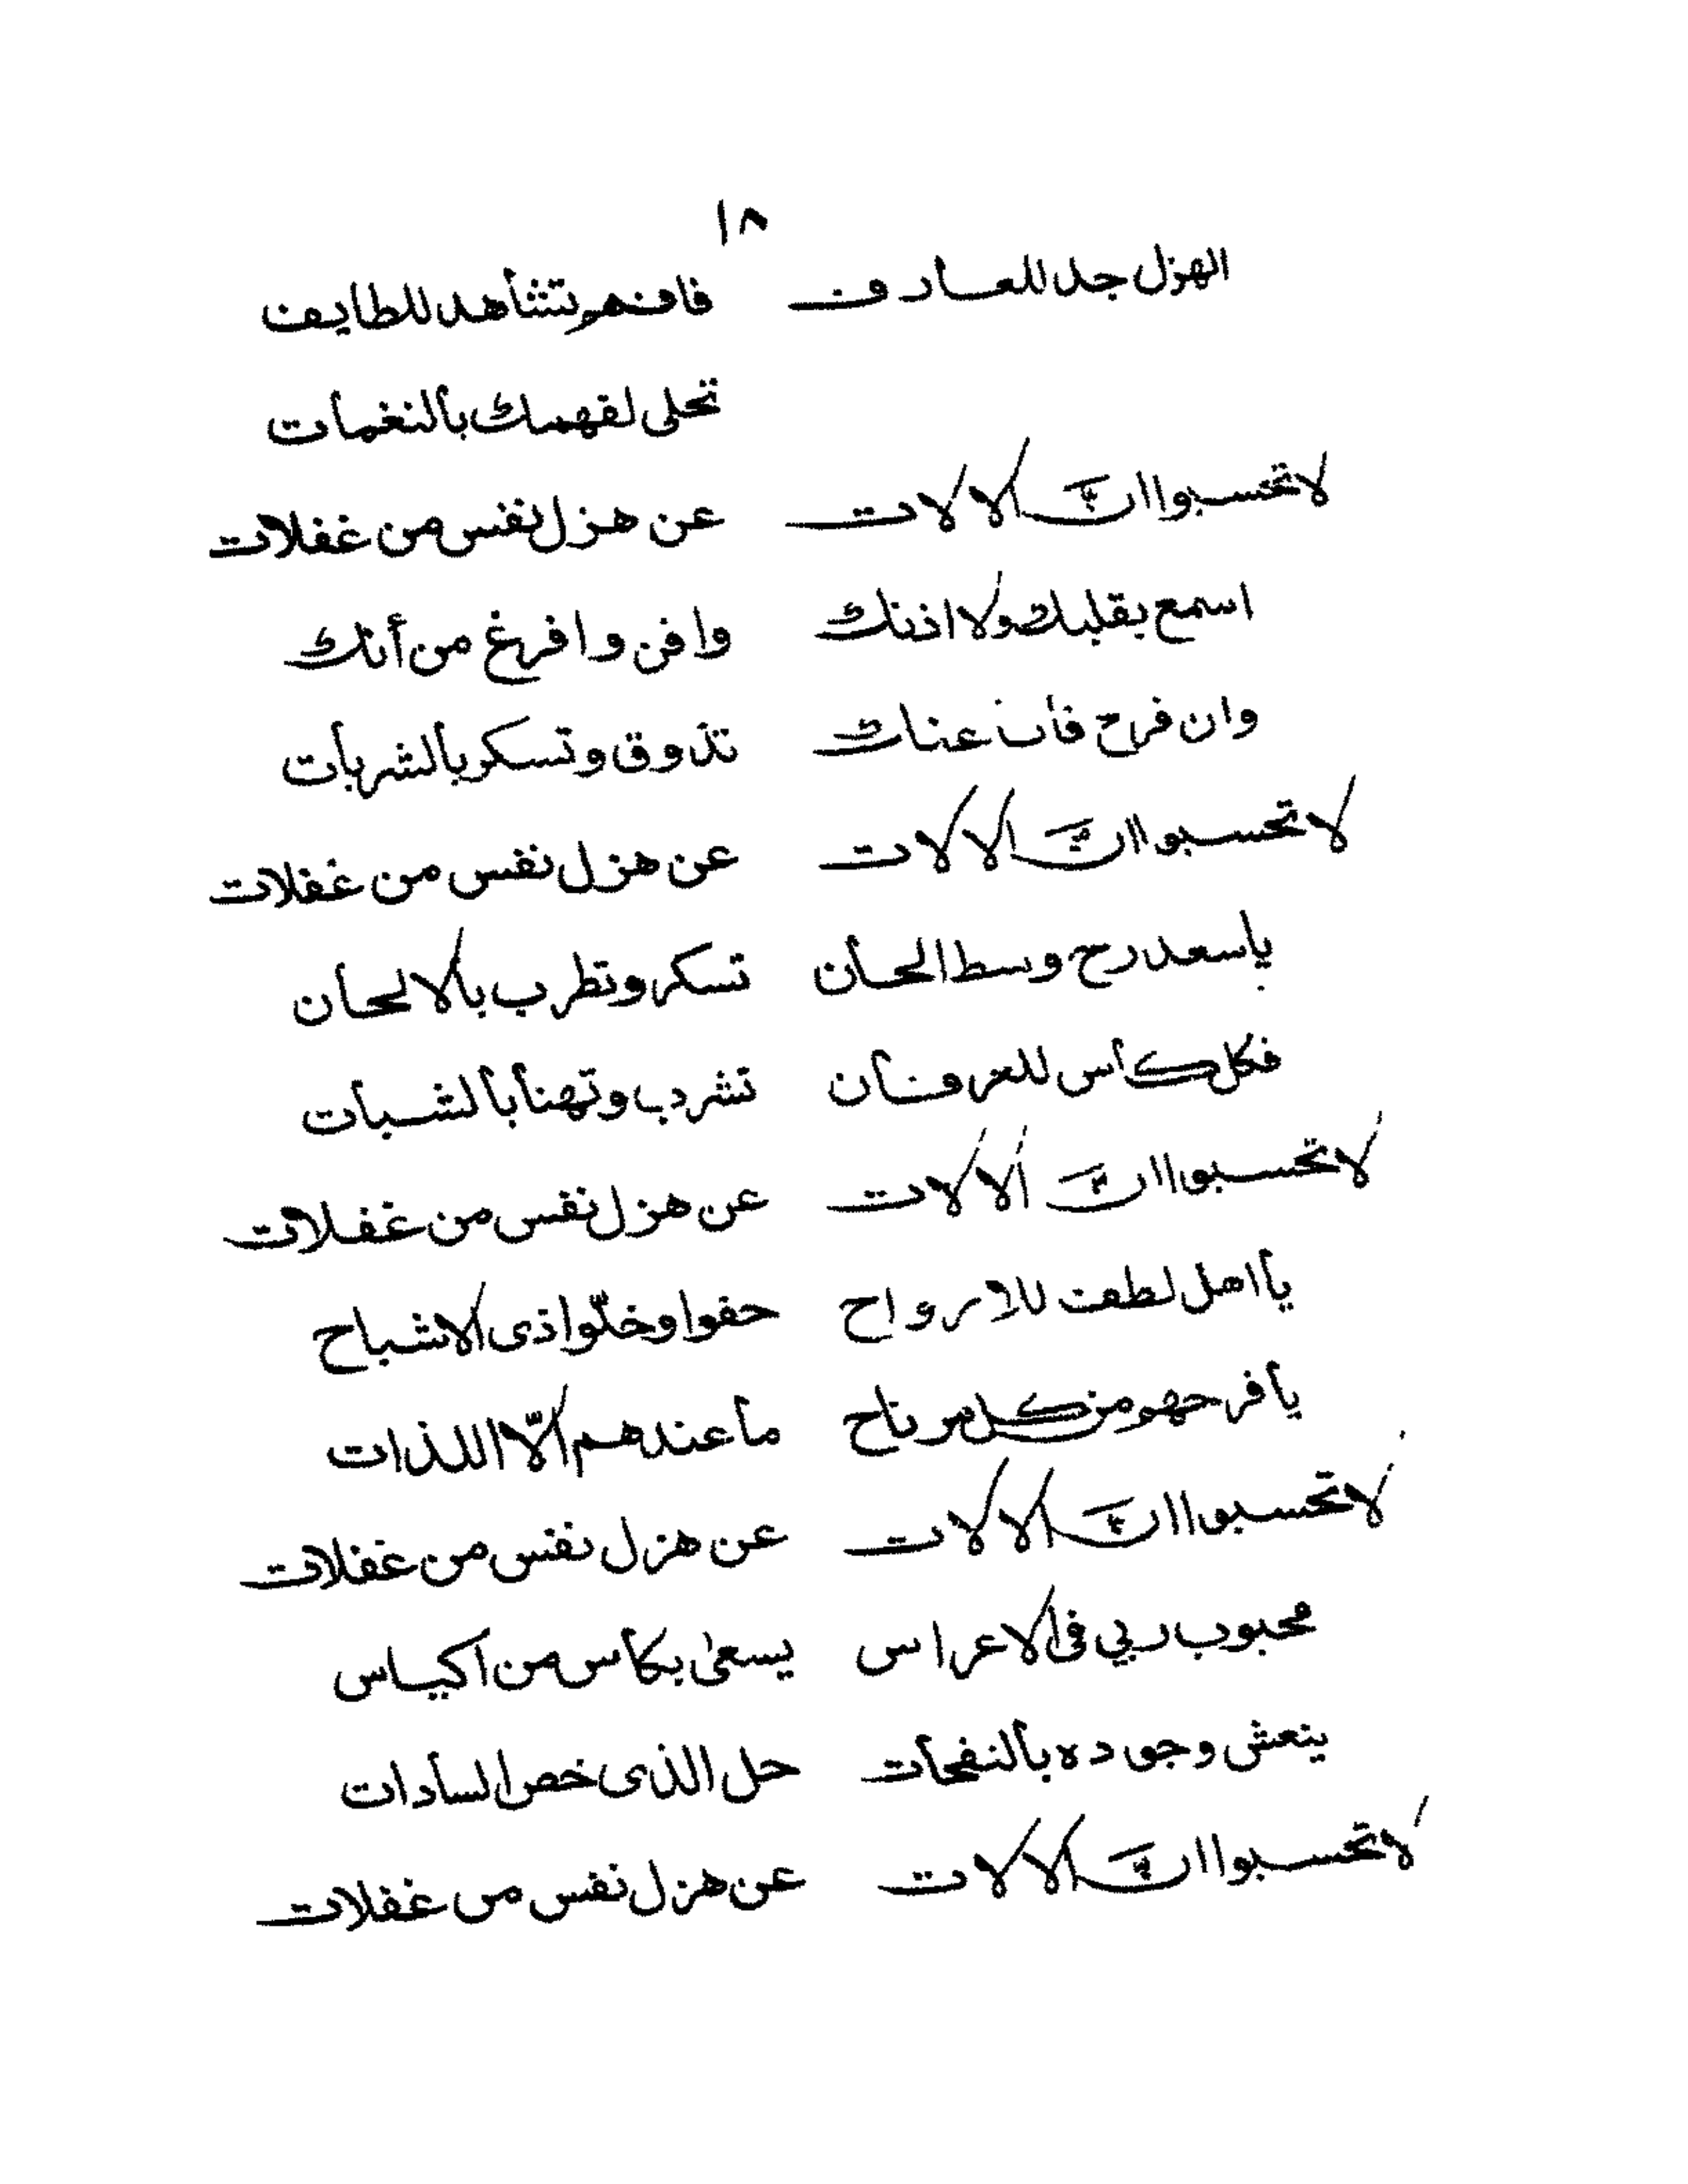 ١٨
الهزل جد للعارف فافهم تشاهد للطايف
تحلى لفهمك بالنغمات
لا تحسبوا انَّ الالات عن هزل نفس من غفلات
اسمع بقلبك ولا اذنك وافن وافرغ من أنك
وان فرح فان عنك تذوق وتسكر بالشربات
لا تحسبوا انَّ الالات عن هزل نفس من غفلات
ياسعد رح وسط الحان تسكر وتطرب بالالحان
فكل كأس للعرفان تشرب وتهنأ بالشبات
لا تحسبوا انَّ الالات عن هزل نفس من غفلات
يا اهل لطف للارواح حفوا وخلّوا ذى الاشباح
يا فرحهم من كل مرتاح ما عندهم الّا اللذات
لا تحسبوا انَّ الالات عن هزل نفس من غفلات
محبوب ربي فى الاعراس يسعى بكأس من اكياس
ينعش وجوده بالنفحات حل الذى خص السادات
لا تحسبوا انَّ الالات عن هزل نفس من غفلات